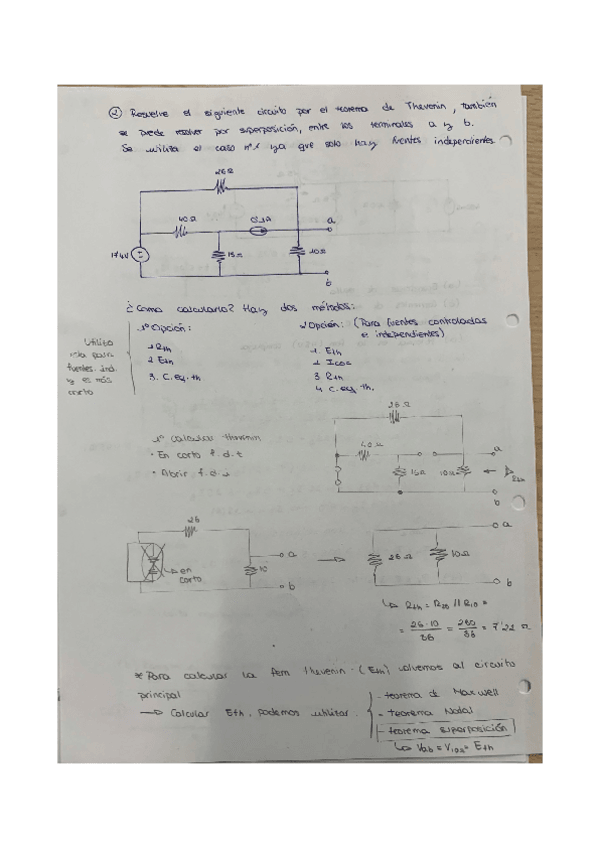 ② Resuelve el siguiente circuito por el teorema de Thevenin, también
se puede resolver por superposición, entre los terminales a y b.
Se utiliza el caso nº1 ya que solo hay fuentes independientes.
26Ω
40Ω
0,1A
a
174V
15Ω
10Ω
b
¿Como calcularlo? Hay dos métodos:
1ª Opción:
1 Rth
2 Eth
3. C. eq. th
Opción: (Para fuentes controladas
e independientes)
1. Eth
2. Icoc
3 Rth
4 C. eq. th.
Utiliza
esta para
fuentes. ind.
y es más
corto
26Ω
1º calcular thevenin
• En corto f. d. t
• Abrir f. d. s
40Ω
15Ω
10Ω
a
b
Rth
26
a
10
b
en
corto
26Ω
10Ω
a
b
Rth = R26 // R10 =
= 26·10/36 = 260/36 = 7'22 Ω
* Para calcular la fem thevenin (Eth) volvemos al circuito
principal
→ Calcular Eth, podemos utilizar
- teorema de Maxwell
- teorema Nodal
- teorema superposición
↳ Vab = V10Ω = Eth